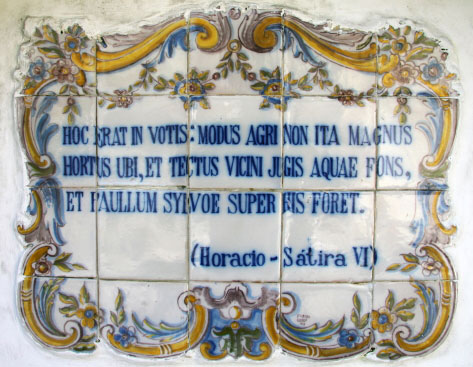 HOC ERAT IN VOTIS: MODUS AGRI NON ITA MAGNUS
HORTUS UBI, ET TECTUS VICINI JUGIS AQUAE FONS,
ET PAULLUM SYLVOE SUPER HIS FORET.
(Horacio - Sátira VI)